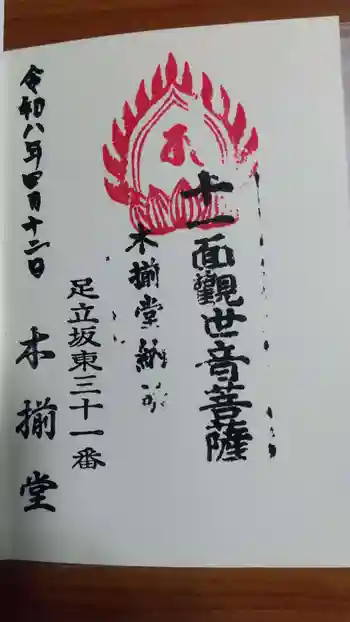 十一面觀世音菩薩
木揃堂納
足立坂東三十一番
令和八年四月十二日
木揃堂